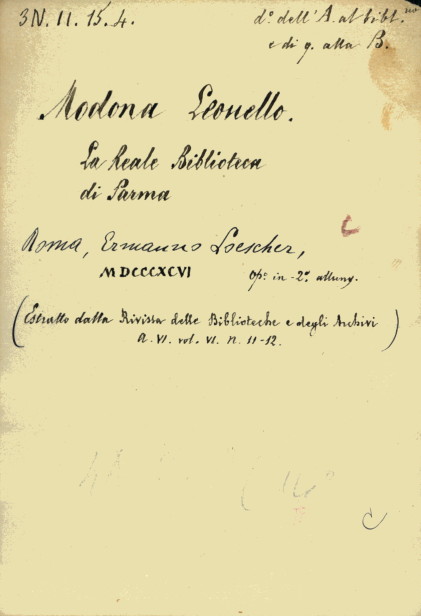 3N. II. 15. 4.
d.º dell'A. al bibl.no
e di q. alla B.
Modona Leonello.
La Reale Biblioteca
di Parma
C
Roma, Ermanno Loescher,
MDCCCXCVI
op.º in-2º allung.
(Estratto dalla Rivista delle Biblioteche e degli Archivi
A. VI. vol. VI. n. 11-12.)
C